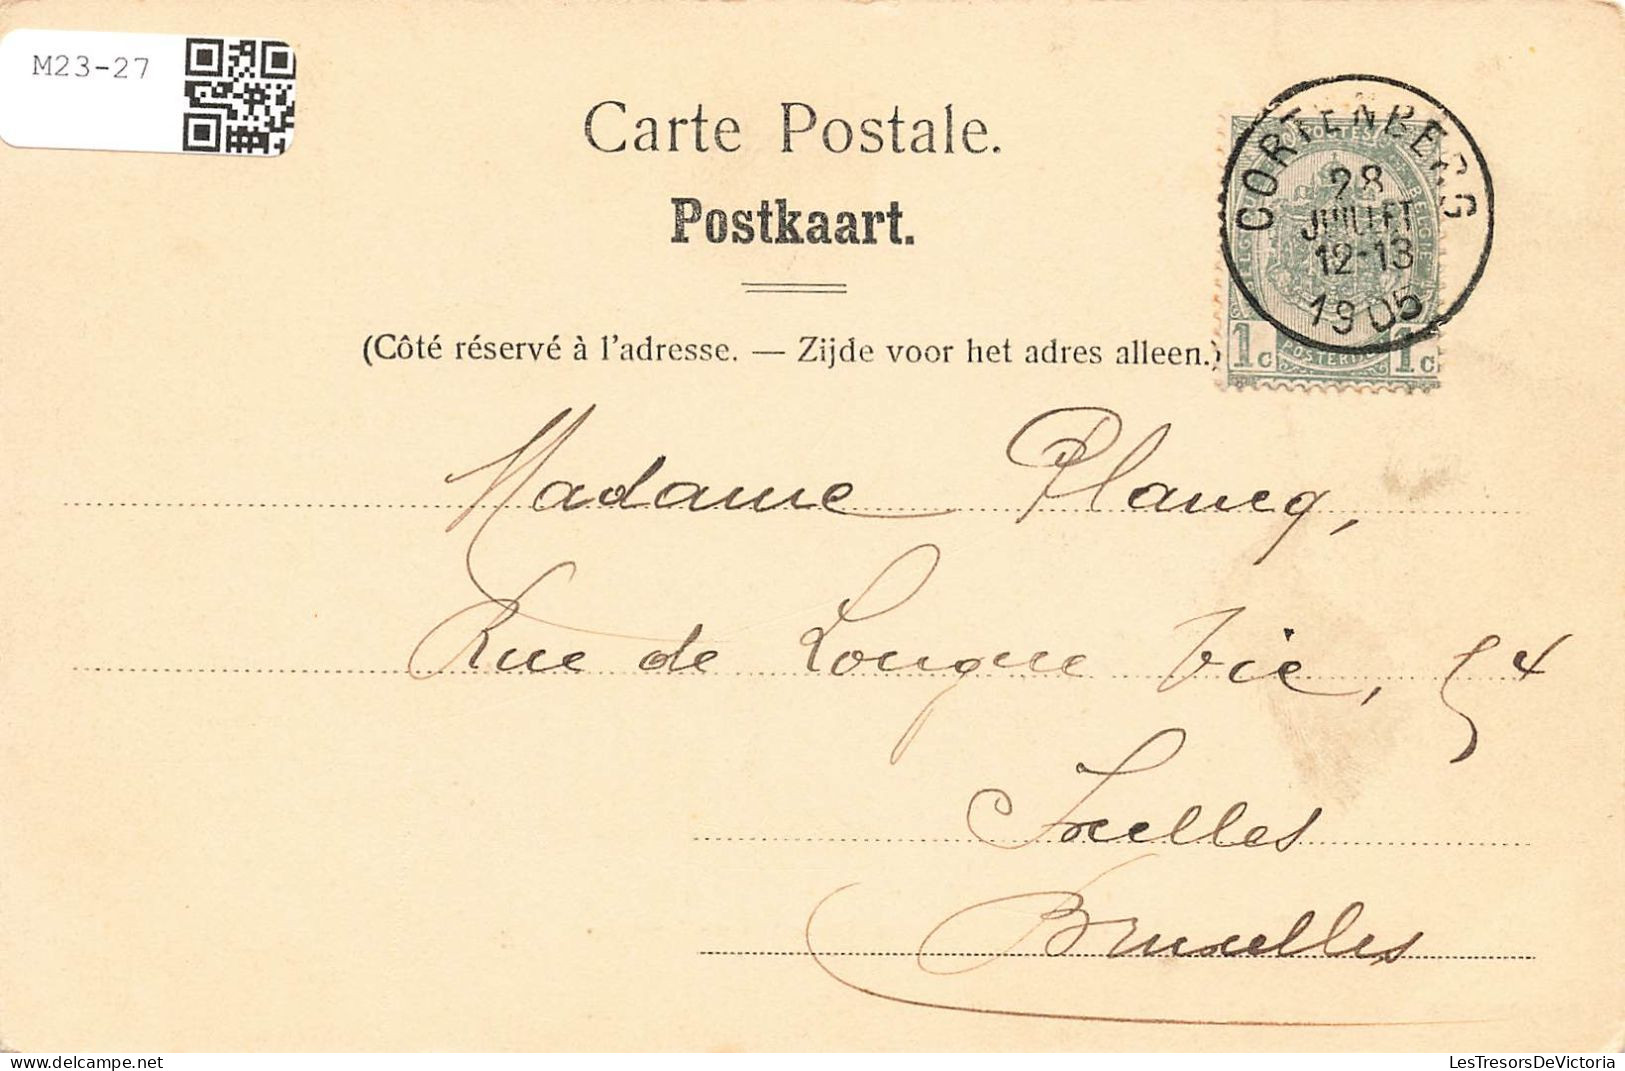 M23-27
Carte Postale.
Postkaart.
(Côté réservé à l'adresse. — Zijde voor het adres alleen.)
CORTENBERG
28
JUILLET
12-13
1905
1c 1c
Madame Plancq,
Rue de Longue Vie, 54
Ixelles
Bruxelles
LesTresorsDeVictoria